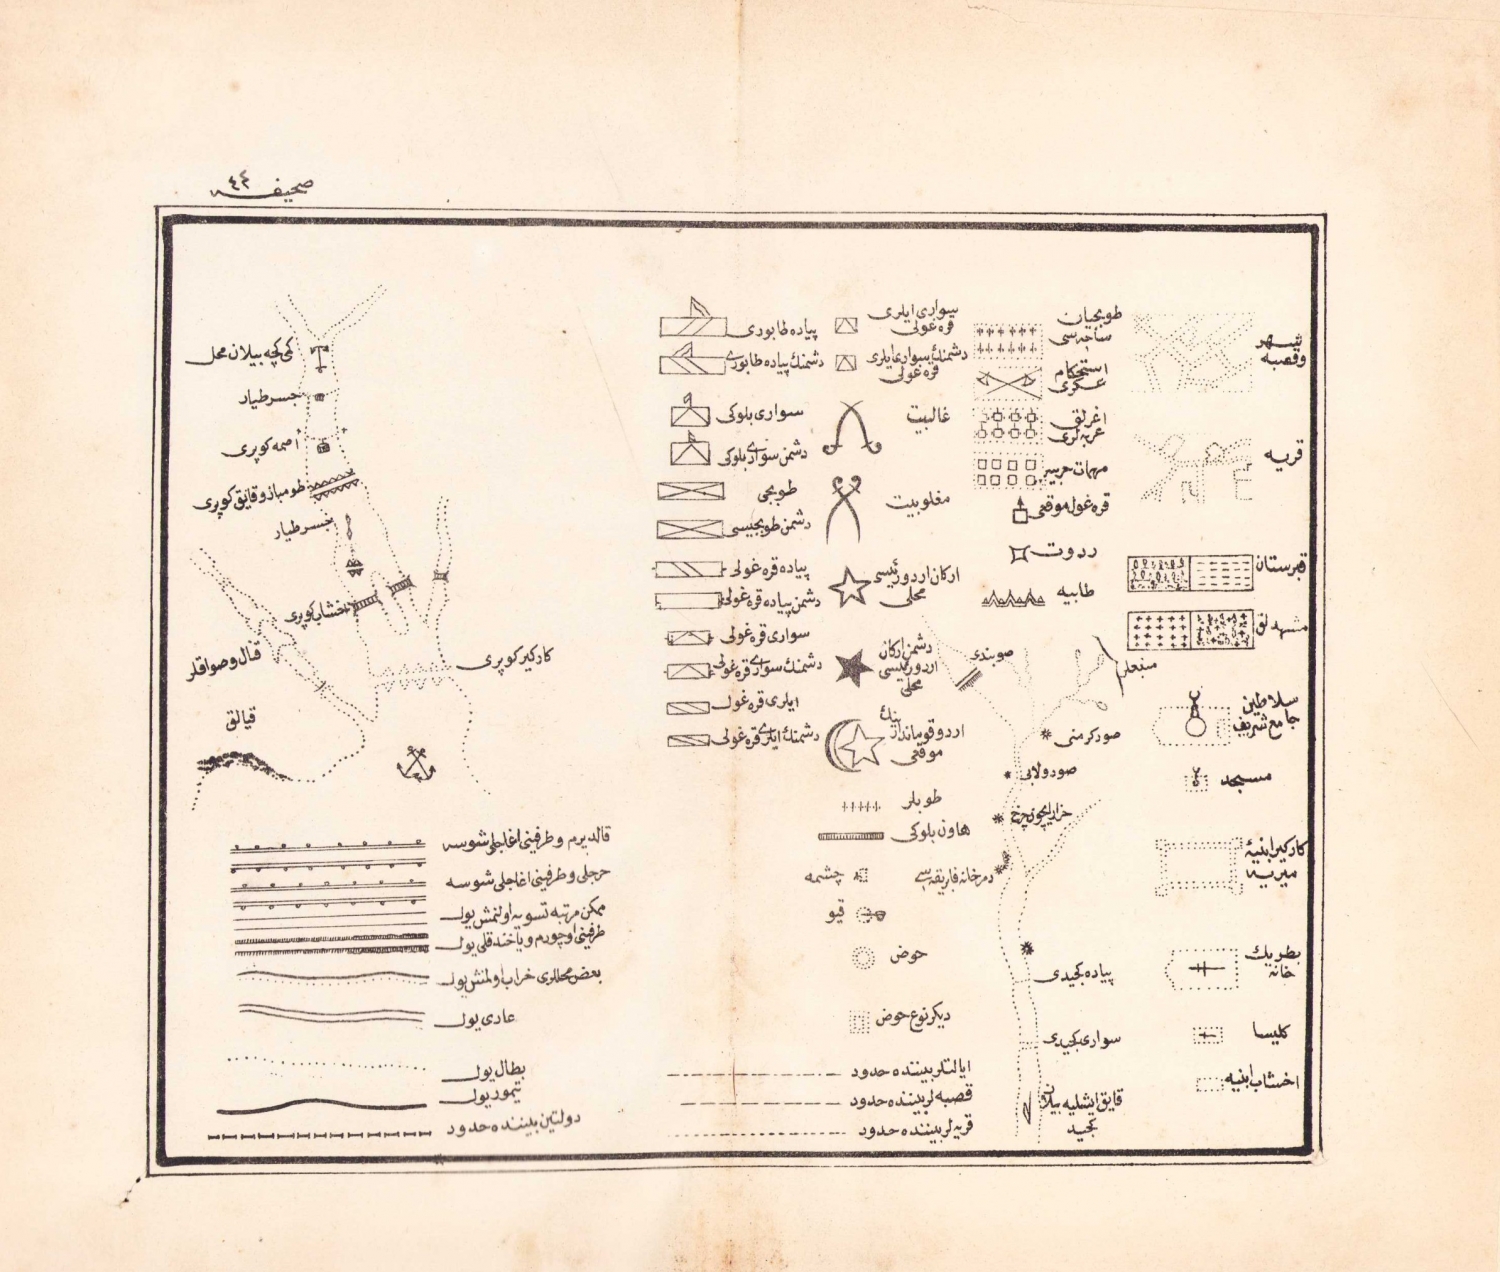 صحیفه ٤٤
شهر
وقصبه
قریه
قبرستان
مشهدلق
سلاطین
جامع شریف
مسجد
کارکیر ابنیهٔ
میریه
بطریك
خانه
کلیسا
اخشاب ابنیه
طوبجیان
ساحه سی
استحکام
عسکری
اغرلق
عربه لری
مهمات حربیه
قره غول موقعی
ردوت
طابیه
صوبندی
منبعلر
صو دکرمنی
صو دولابی
پیاده کجیدی
سواری کجیدی
قایق ایشلیه بیلان
کجید
سواری ایلری
قره غولی
دشمنك سواری ایلری
قره غولی
غالبیت
مغلوبیت
ارکان اردو رئیسی
محلی
دشمن ارکان
اردو رئیسی
محلی
اردو قوماندانینك
موقعی
طوبلر
هاون بلوکی
چشمه
قیو
حوض
دیکر نوع حوض
ایالتلر بیننده حدود
قصبه لر بیننده حدود
قریه لر بیننده حدود
پیاده طابوری
دشمنك پیاده طابوری
سواری بلوکی
دشمن سواری بلوکی
طوبجی
دشمن طوبجیسی
پیاده قره غولی
دشمن پیاده قره غولی
سواری قره غولی
دشمنك سواری قره غولی
ایلری قره غول
دشمنك ایلری قره غولی
کمی کچه بیلان محل
جسر طیار
اصمه کوپری
طومباز و قایق کوپری
جسر طیار
اخشاب کوپری
کارکیر کوپری
قنال و صواقلر
قیالق
قالدیرم و طرفینی اغاجلی شوسه
طرفینی اغاجلی شوسه
ممکن مرتبه تسویه اولنمش یول
طرفینی اوچورم و یا خندقلی یول
بعض محللری خراب اولمش یول
عادی یول
بطال یول
تیمور یول
دولتین بیننده حدود